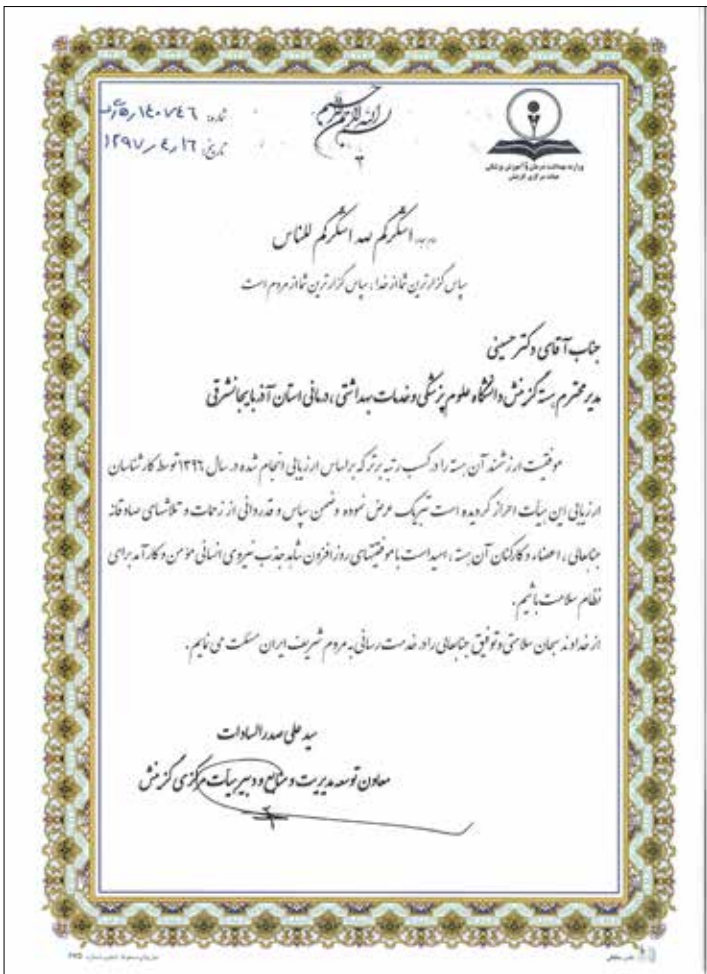 بسم الله الرحمن الرحیم
وزارت بهداشت درمان و آموزش پزشکی
هیات مرکزی گزینش
شماره:
تاریخ: ۱۳۹۷/۴/۱۶
اشکرکم لله اشکرکم للناس
سپاس گزارترین شما از خدا، سپاس گزارترین شما از مردم است
جناب آقای دکتر حسینی
مدیر محترم هسته گزینش دانشگاه علوم پزشکی و خدمات بهداشتی، درمانی استان آذربایجانشرقی
موفقیت ارزشمند آن هسته را در کسب رتبه برتر که براساس ارزیابی انجام شده در سال ۱۳۹۶ توسط کارشناسان
ارزیابی این هیأت احراز گردیده است تبریک عرض نموده و ضمن سپاس و قدردانی از زحمات و تلاشهای صادقانه
جنابعالی، اعضاء و کارکنان آن هسته، امید است با موفقیتهای روزافزون شاهد جذب نیروی انسانی مؤمن و کارآمد برای
نظام سلامت باشیم.
از خداوند سبحان سلامتی و توفیق جنابعالی را در خدمت رسانی به مردم شریف ایران مسئلت می نمایم.
سید علی صدرالسادات
معاون توسعه مدیریت و منابع و دبیر هیأت مرکزی گزینش